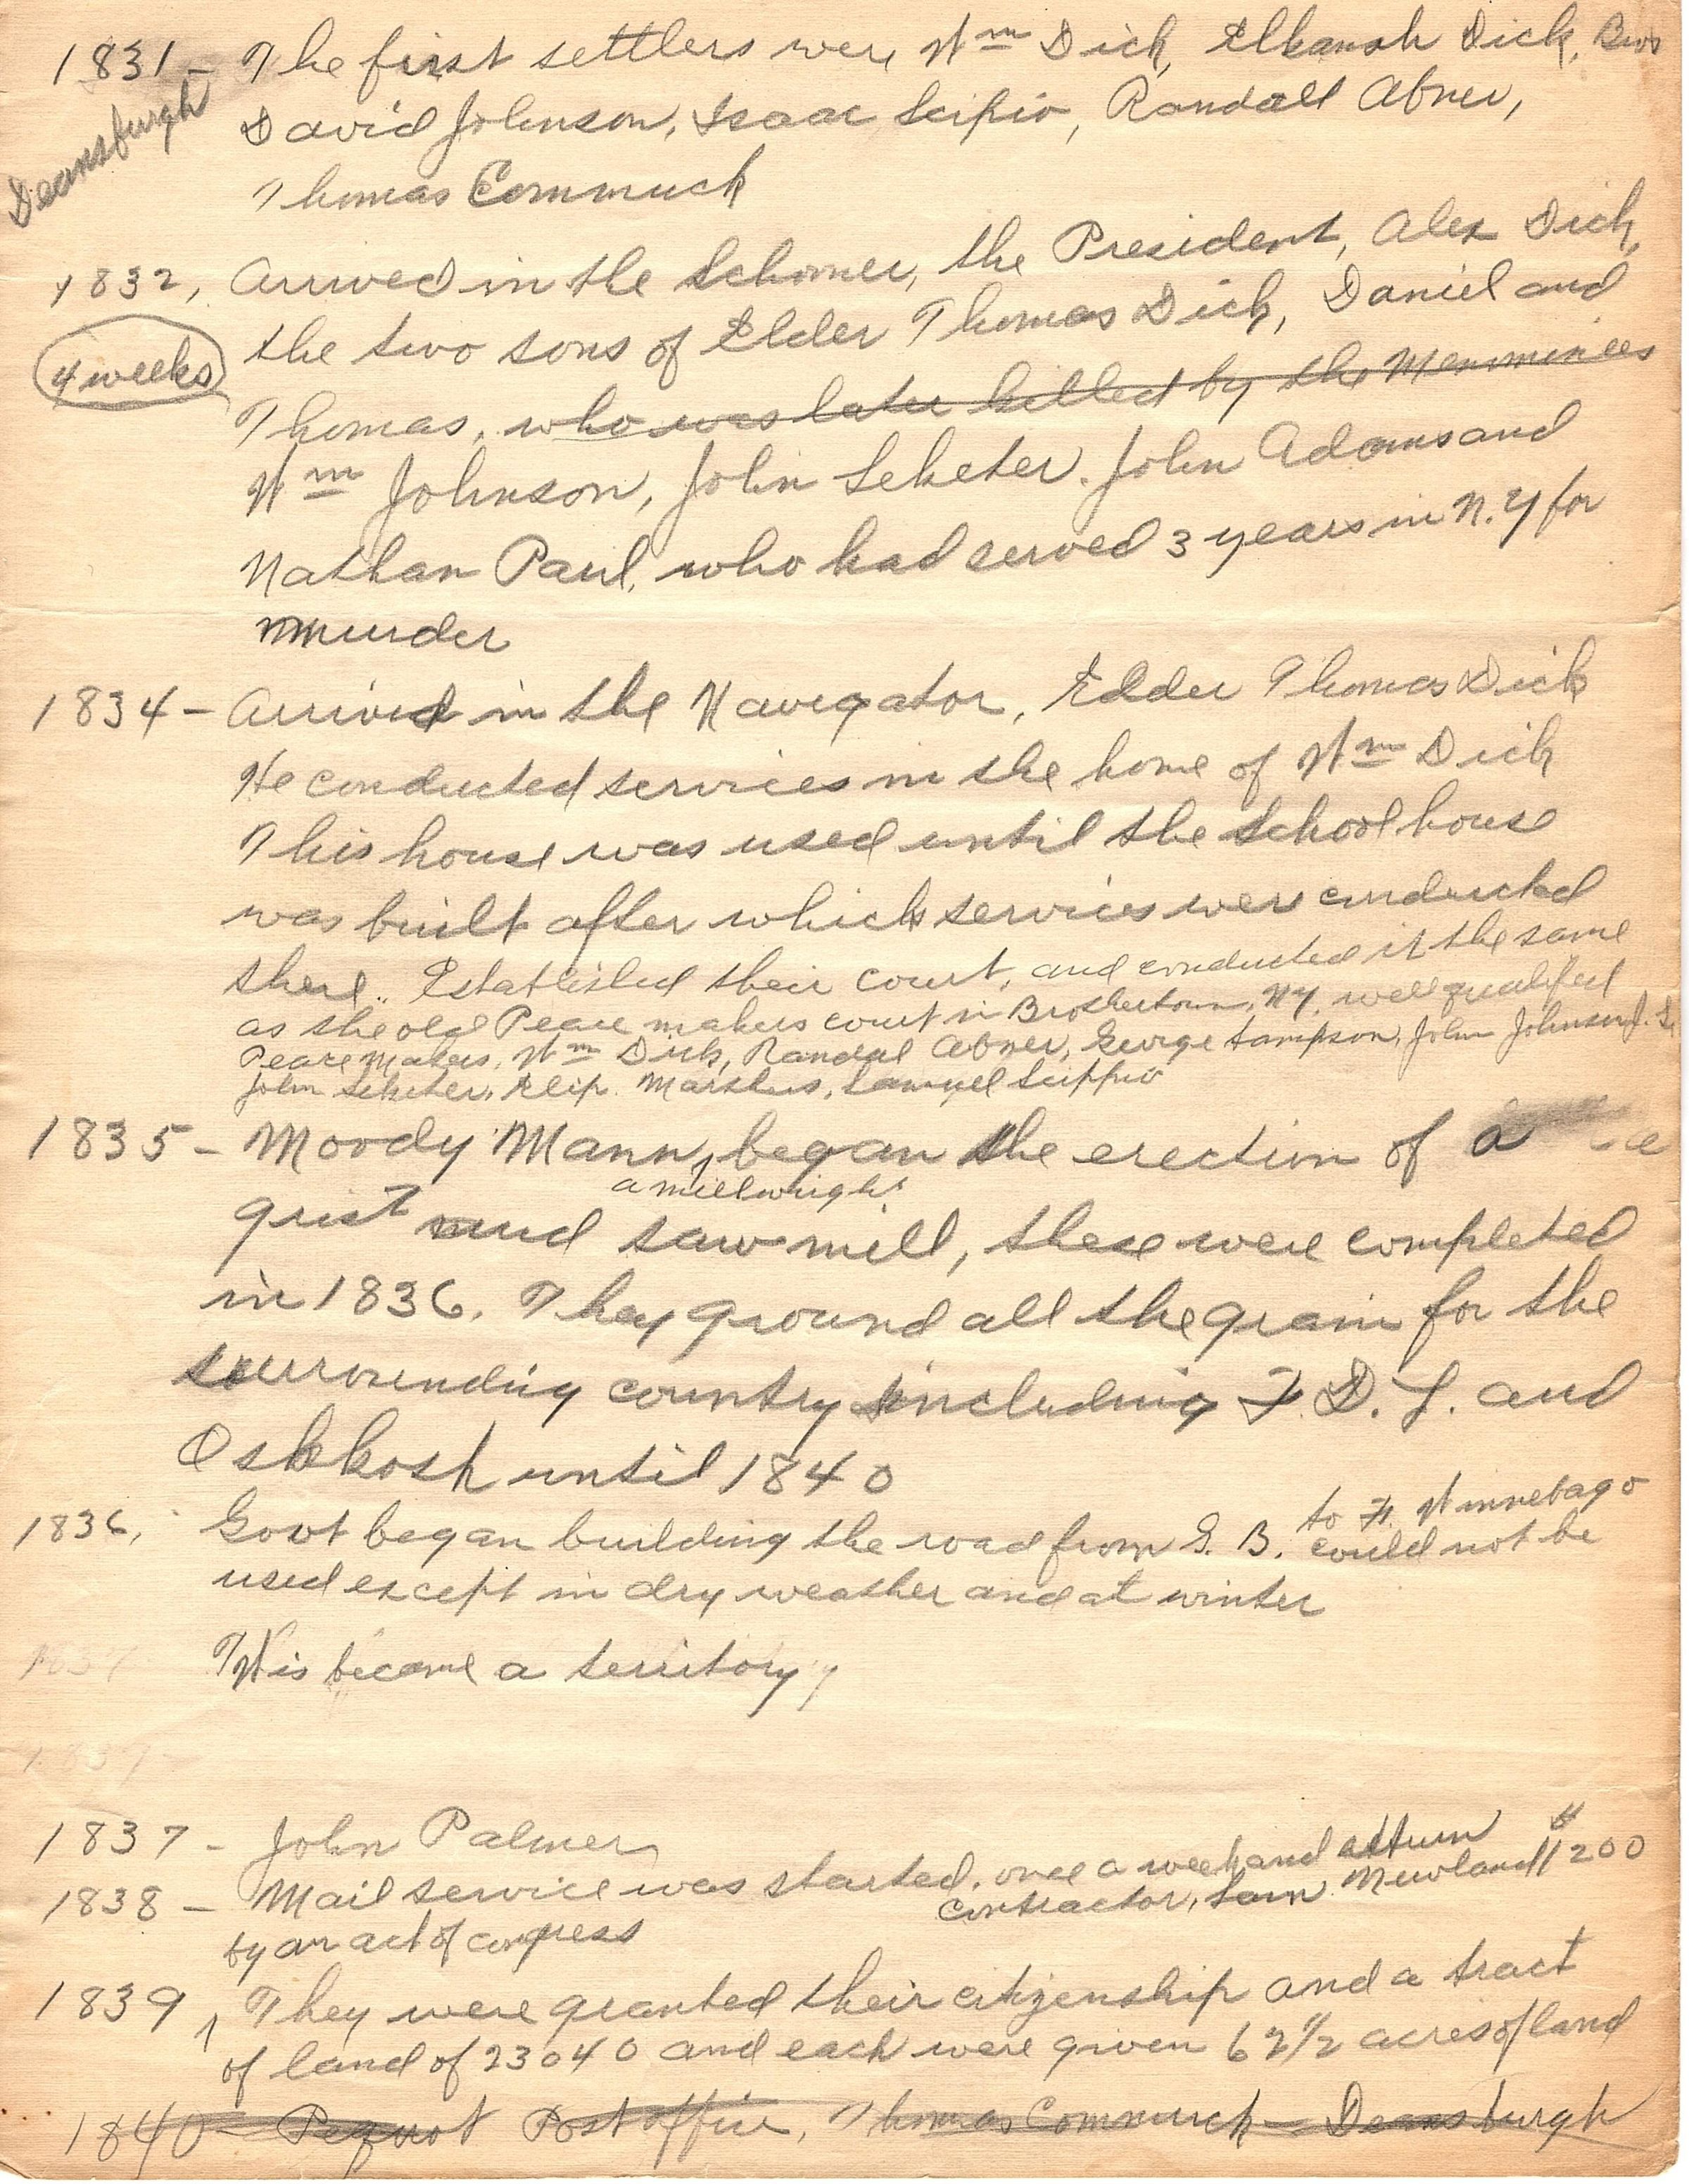 1831 - The first settlers were Wm Dick, Elkanah Dick, Bros
Deansburgh
David Johnson, Isaac Scipio, Randall Abner,
Thomas Commuck
1832, Arrived in the Schooner, the President, Alex Dick,
the two sons of Elder Thomas Dick, Daniel and
4 weeks
Thomas, who was later killed by the Menominees
Wm Johnson, John Seketer. John Adams and
Nathan Paul, who had served 3 years in N.Y for
murder
1834 - Arrived in the Navigator, Elder Thomas Dick
He conducted services in the home of Wm Dick
This house was used until the school house
was built after which services were conducted
there.. Established their court, and conducted it the same
as the old Peace makers court in Brothertown, NY. well qualified
Peace Makers, Wm Dick, Randal Abner, George Sampson, John Johnson,
John Seketer, Elip. Marthers, Samuel Scippio
1835 - Moody Mann, began the erection of a
a millwright
grist and saw mill, these were completed
in 1836. They ground all the grain for the
surrounding country including F. D. L. and
Oshkosh until 1840
1836, Govt began building the road from G. B. to Ft. Winnebago
could not be
used except in dry weather and at winter
1837 Wis became a territory
1837
1837 - John Palmer
1838 - Mail service was started, once a week and return
contractor, Sam Newland $1200
by an act of congress
1839, They were granted their citizenship and a tract
of land of 23040 and each were given 62 1/2 acres of land
1840 - Pequot Post office, Thomas Commuck - Deansburgh